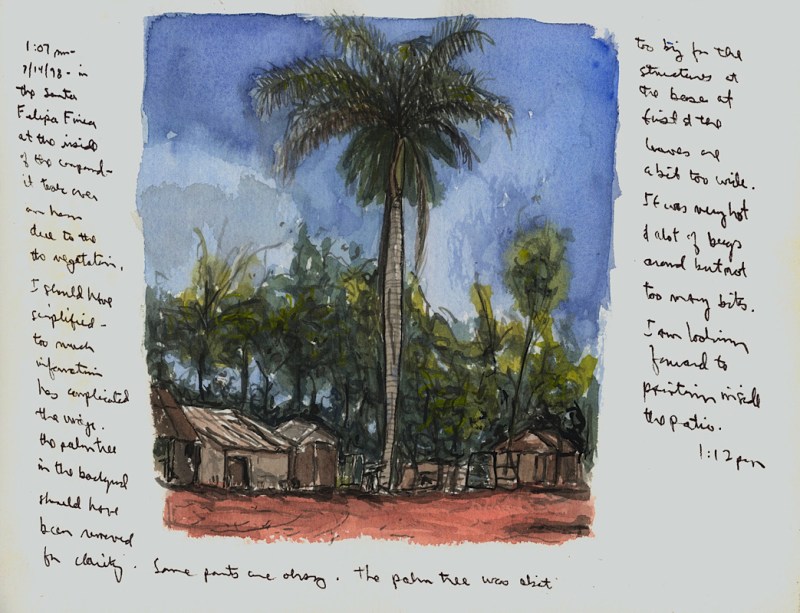 1:07 pm-
7/14/98 - in
the Santa
Felipa Finca
at the inside
of the compound -
it took over
an hour
due to the
the vegetation.
I should have
simplified -
too much
information
has complicated
the image.
the palm tree
in the backyard
should have
been removed
for clarity. Some parts are okay. The palm tree was a bit
too big for the
structures at
the base at
first & the
leaves are
a bit too wide.
It was very hot
& a lot of bugs
around but not
too many bites.
I am looking
forward to
painting inside
the patio.
1:12 pm